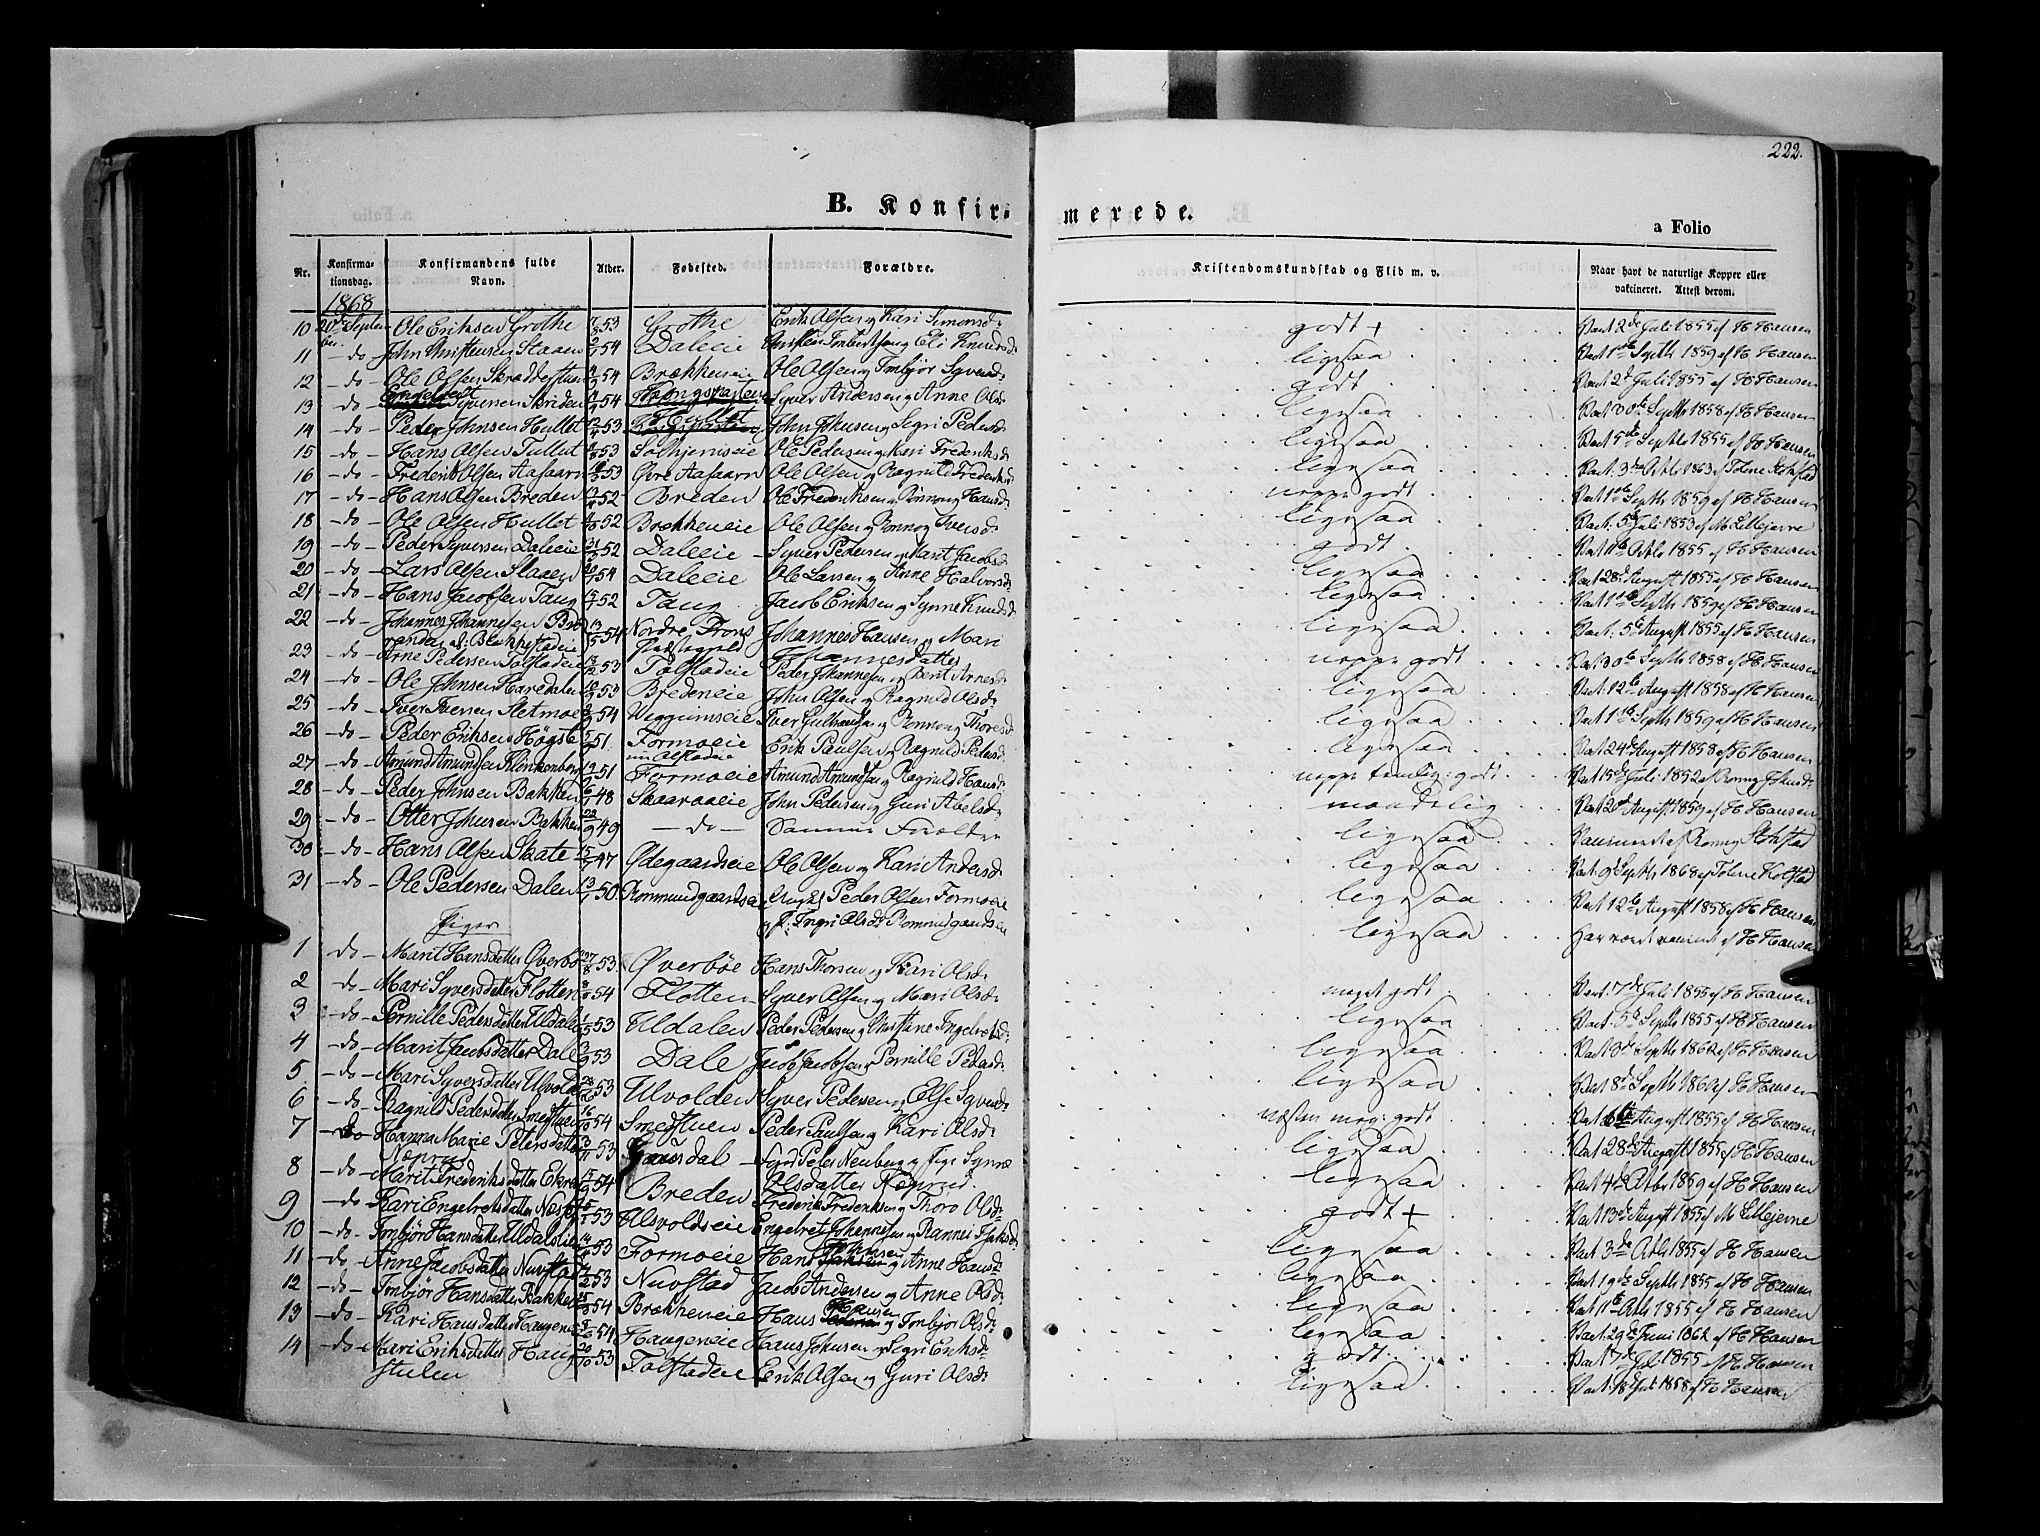 222.
B. Konfir- merede.
a Folio
Nr. Konfirmationsdag. Konfirmandens fulde Navn. Alder. Fødested. Forældre. Kristendomskundskab og Flid m. v. Naar havt de naturlige Kopper eller vakcineret. Attest derom.
1868
10 20de Septenber. Ole Eriksen Grothe 53 Grothe Erik Olsen og Kari Simensd: godt + Vact 2de Juli 1855 af H Hansen
11 -do- John Christensen Slaaen 54 Daleeie Christen og Eli Knudsd: ligesaa Vact 1ste Septb 1859 af H Hansen
12 -do- Ole Olsen 54 Brækkeneie Ole Olsen og Torbjør Syversd: godt Vact 2de Juli 1855 af H Hansen
13 -do- Syversen Skriden 54 Syver Andersen og Anne Olsd: ligesaa Vact 30te Septb 1858 af H Hansen
14 -do- Peder Johnsen Hullet 53 Hullet John Johnsen og Segri Pedersd: ligesaa Vact 5te Septb 1855 af H Hansen
15 -do- Hans Olsen Tullut 53 Solhjemseie Ole Pedersen og Kari Frederiksd: ligesaa Vact: 3die Octb 1863 af Tolene Kolstad
16 -do- Frederik Olsen Aasaaren 53 Øvre Aasaaren Ole Olsen og Ragnild Frederiksd: noppe godt Vact 1ste Septb 1859 af H Hansen
17 -do- Hans Olsen Breden 52 Breden Ole Frederiksen og Rønnog Hansd: ligesaa Vact: 5te Juli 1853 af M Lillejerne
18 -do- Ole Olsen Hullet 52 Brækkeneie Ole Olsen og Rønnog Iversd: godt Vact 11te Octb 1855 af H Hansen
19 -do- Peder Syversen Daleeie 52 Daleeie Syver Pedersen og Marit Jacobsd: ligesaa Vact 28de August 1855 af H Hansen
20 -do- Lars Olsen Slaaen 54 Daleeie Ole Larsen og Anne Halvorsd: ligesaa Vact 1ste Septb 1859 af H Hansen
21 -do- Hans Jacobsen Taug 52 Taug Jacob Eriksen og Synne Knudsd: ligesaa Vact: 5te August 1855 af H Hansen
22 -do- Johannes Johannesen 54 Nordre Frons Præstegjeld Johannes Hansen og Mari Johannesdatter noppe godt Vact 30te Septb 1858 af H Hansen
23 -do- Arne Pedersen Tolstadeie 53 Tolstadeie Peder Johannesen og Berit Arnesd: ligesaa Vact: 12te August 1858 af H Hansen
24 -do- Ole Johnsen Haredalen 53 Bredeneie John Olsen og Ragnild Olsd: ligesaa Vact 1ste Septb 1859 af H Hansen
25 -do- Iver Iversen Sletmoe 54 Veggumseie Iver Gulbrandsen og Rønnog Thoresd: ligesaa Vact 24de August 1858 af H Hansen
26 -do- Peder Eriksen Høgsle 51 Formoeie Erik Paulsen og Ragnild Pedersd: noppe temlig: godt Vact 15de Juli 1852 af Rønnog
27 -do- Amund Amundsen Klinkenberg 51 Formoeie Amund Amundsen og Ragnild Hansd: maadelig Vact 20de August 1859 af H Hansen
28 -do- Peder Johnsen Bakken 48 Skaaraaeie John Pedersen og Guri Abelsd: ligesaa
29 -do- Otter Johnsen Bakken 22/9 49 -do- Samme Forældre ligesaa Vact: 9de Septb 1868 af Tolene Kolstad
30 -do- Hans Olsen Skate 47 Ødegaardseie Ole Olsen og Kari Andersd: ligesaa Vact 12te August 1858 af H Hansen
31 -do- Ole Pedersen Dalen 13/1 50 Rommundgaardseie Ungkl Peder Olsen Formoeie og P: Ingri Olsd: Rommundgaardseie ligesaa Har været vaccinert af H Hansen
Piger
1 do- Marit Hansdatter Øverbøe 53 Øverbøe Hans Thorsen og Kari Olsd: meget godt Vact: 7de Juli 1855 af H Hansen
2 do- Mari Syversdatter Flotten 54 Flotten Syver Olsen og Mari Olsd: ligesaa Vact: 5te Septb 1855 af H Hansen
3 -do- Pernille Pedersdatter Uldalen 53 Uldalen Peder Pedersen og Christine Ingebretsd: ligesaa Vact 3de Septb 1862 af H Hansen
4 -do- Marit Jacobsdatter Dale 53 Dale Jacob Jacobsen og Pernille Pedersd: ligesaa Vact 8de Septb 1860 af H Hansen
5 -do- Mari Syversdatter Ulvolden 53 Ulvolden Syver Pedersen og Else Syversd: næsten meg: godt Vact 6te August 1855 af H Hansen
6 -do- Ragnild Pedersdatter Smestuen 54 Smestuen Peder Paulsen og Kari Olsd: ligesaa Vact 28de August 1855 af H Hansen
7 -do Hanna Marie Petersdatter Næprud 53 Gausdal Peter Neuberg og Pige Synnø Olsdatter Næprud ligesaa Vact 4de Octbr 1859 af H Hansen
8 -do- Marit Frederiksdatter Ekre 54 Breden Frederik Frederiksen og Thoro Olsd: godt + Vact 13de August 1855 af M Lillejerne
9 -do Kari Engebretsdatter 53 Ulsvoldseie Engebret Johannesen og Rannei ligesaa Vact 3de Octb 1855 af H Hansen
10 -do- Torbjør Hansdatter Uldalslien 53 Formoeie Hans og Anne Hansd: ligesaa Vact 19de Septb 1855 af H Hansen
11 -do- Anne Jacobsdatter Nuvstad 53 Nuvstad Jacob Andersen og Anne Olsd: ligesaa Vact 11te Octb 1855 af H Hansen
12 -do- Torbjør Hansdatter Bakken 54 Brækkeneie Hans Hansen og Torbjør Olsd: ligesaa Vact: 29de Juni 1862 af H Hansen
13 -do- Kari Hansdatter Haugeneie 54 Haugeneie Hans Johnsen og Segri Eriksd: godt Vact 7de Juli 1855 af H Hansen
14 -do- Mari Eriksdatter Haugstulen 20/10 53 Tolstadeie Erik Olsen og Guri Olsd: ligesaa Vact: 18de Juli 1858 af H Hansen